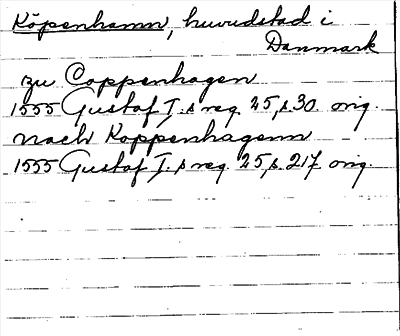 Köpenhamn, huvudstad i
Danmark
zu Coppenhagen
1555 Gustaf I. s reg. 25, s. 30 orig.
nach Koppenhagenn
1555 Gustaf I. s reg. 25, s. 217 orig.